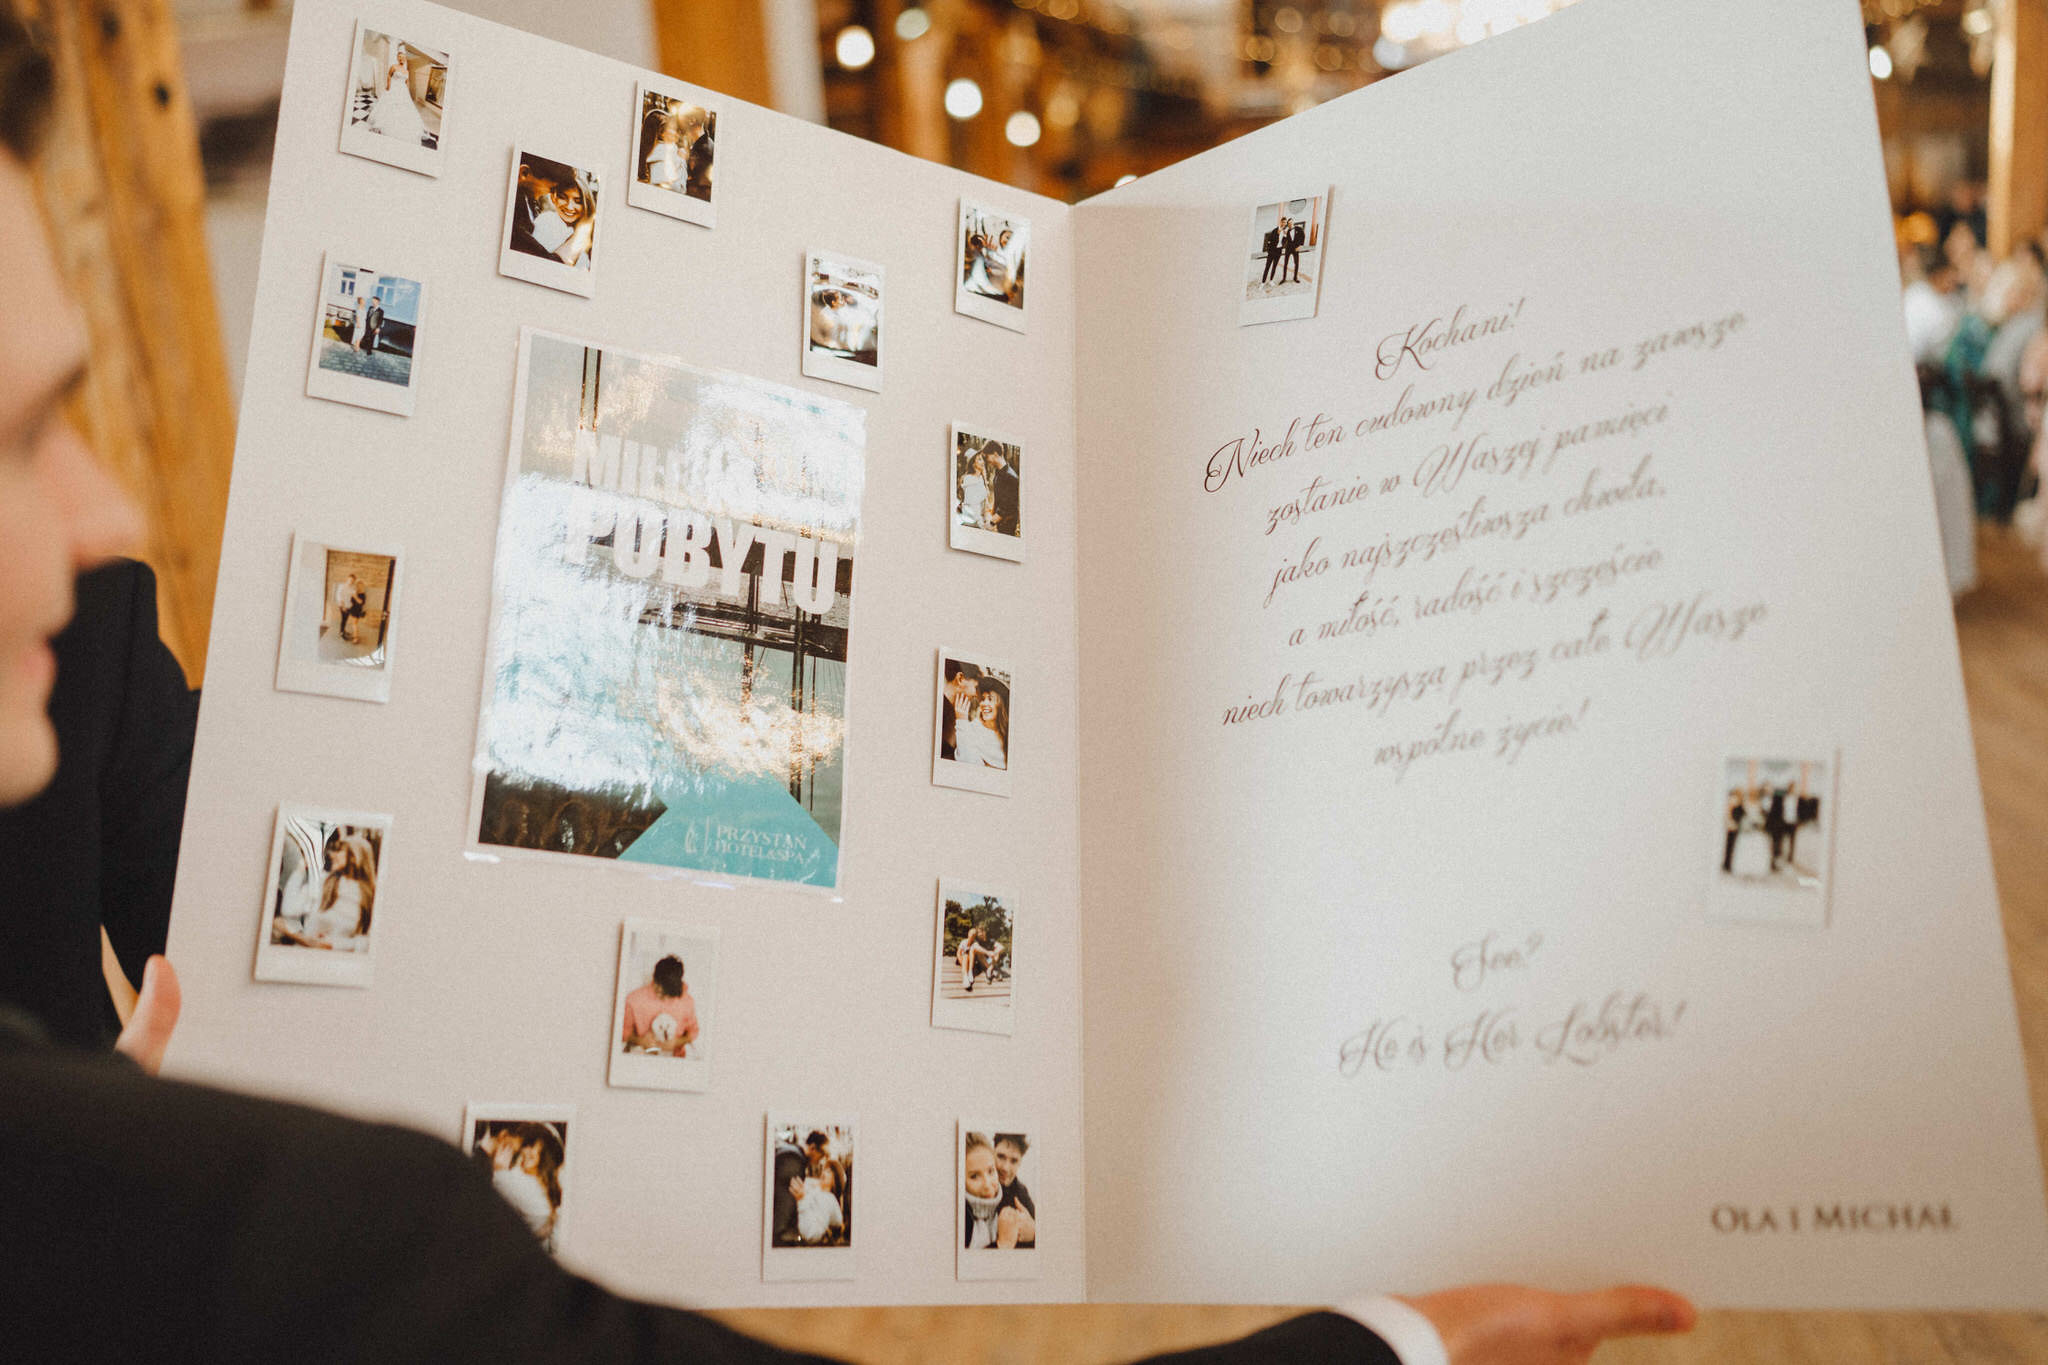 POBYTU
PRZYSTAŃ
HOTEL&SPA
Kochani!
Niech ten cudowny dzień na zawsze
zostanie w Waszej pamięci
jako najszczęśliwsza chwila,
a miłość, radość i szczęście
niech towarzyszą przez całe Wasze
wspólne życie!
See?
He is Her Lobster!
OLA I MICHAŁ